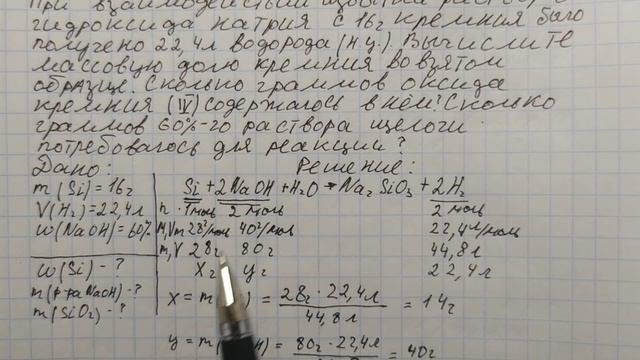 При взаимодействии избытка
гидроксида натрия с 16г кремния было
получено 22,4л водорода (н.у.). Вычислите
массовую долю кремния во взятом
образце. Сколько граммов оксида
кремния (IV) содержалось в нём? Сколько
граммов 60%-го раствора щелочи
потребовалось для реакции?
Дано: Решение:
m(Si)=16г Si+2NaOH+H₂O→Na₂SiO₃+2H₂
V(H₂)=22,4л n 1моль 2 моль 2 моль
w(NaOH)=60% M,Vm 28г/моль 40г/моль 22,4л/моль
m,V 28г 80г 44,8л
w(Si)-? xг yг 22,4л
m(р-раNaOH)-? x=m( )= 28г·22,4л / 44,8л = 14г
m(SiO₂)-?
y=m( H)= 80г·22,4л = 40г